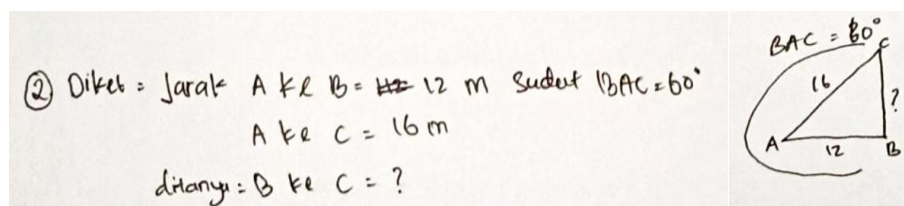 ② Diket = Jarak A ke B = 12 m Sudut BAC = 60°
A ke C = 16 m
ditanya = B ke C = ?
BAC = 60°
C
16
?
A
12
B